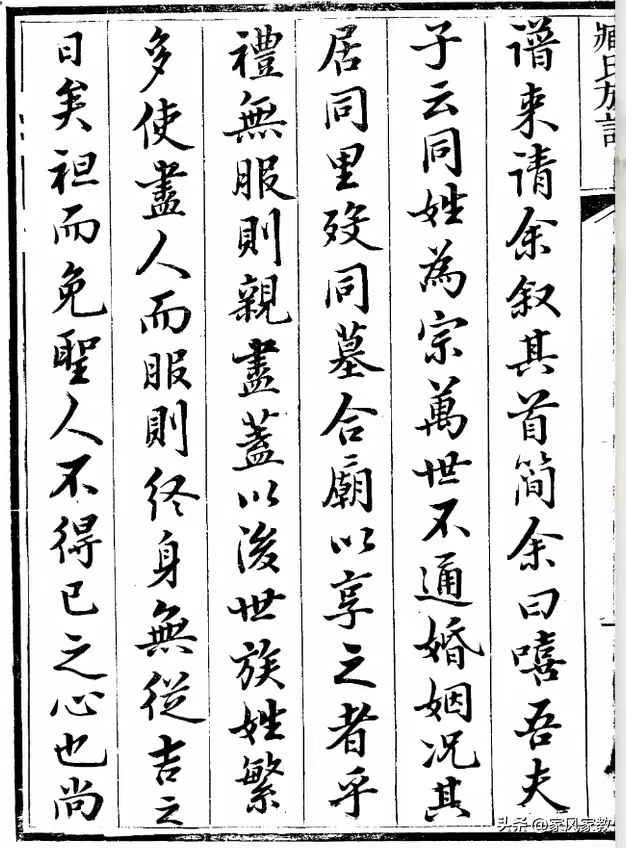 臧氏族譜
譜来请余叙其首简余曰嘻吾夫
子云同姓為宗萬世不通婚姻况其
居同里殁同墓合廟以享之者乎
禮無服則親盡蓋以後世族姓繁
多使盡人而服則终身無從吉之
日矣袒而免聖人不得已之心也尚
头条 @家风家教